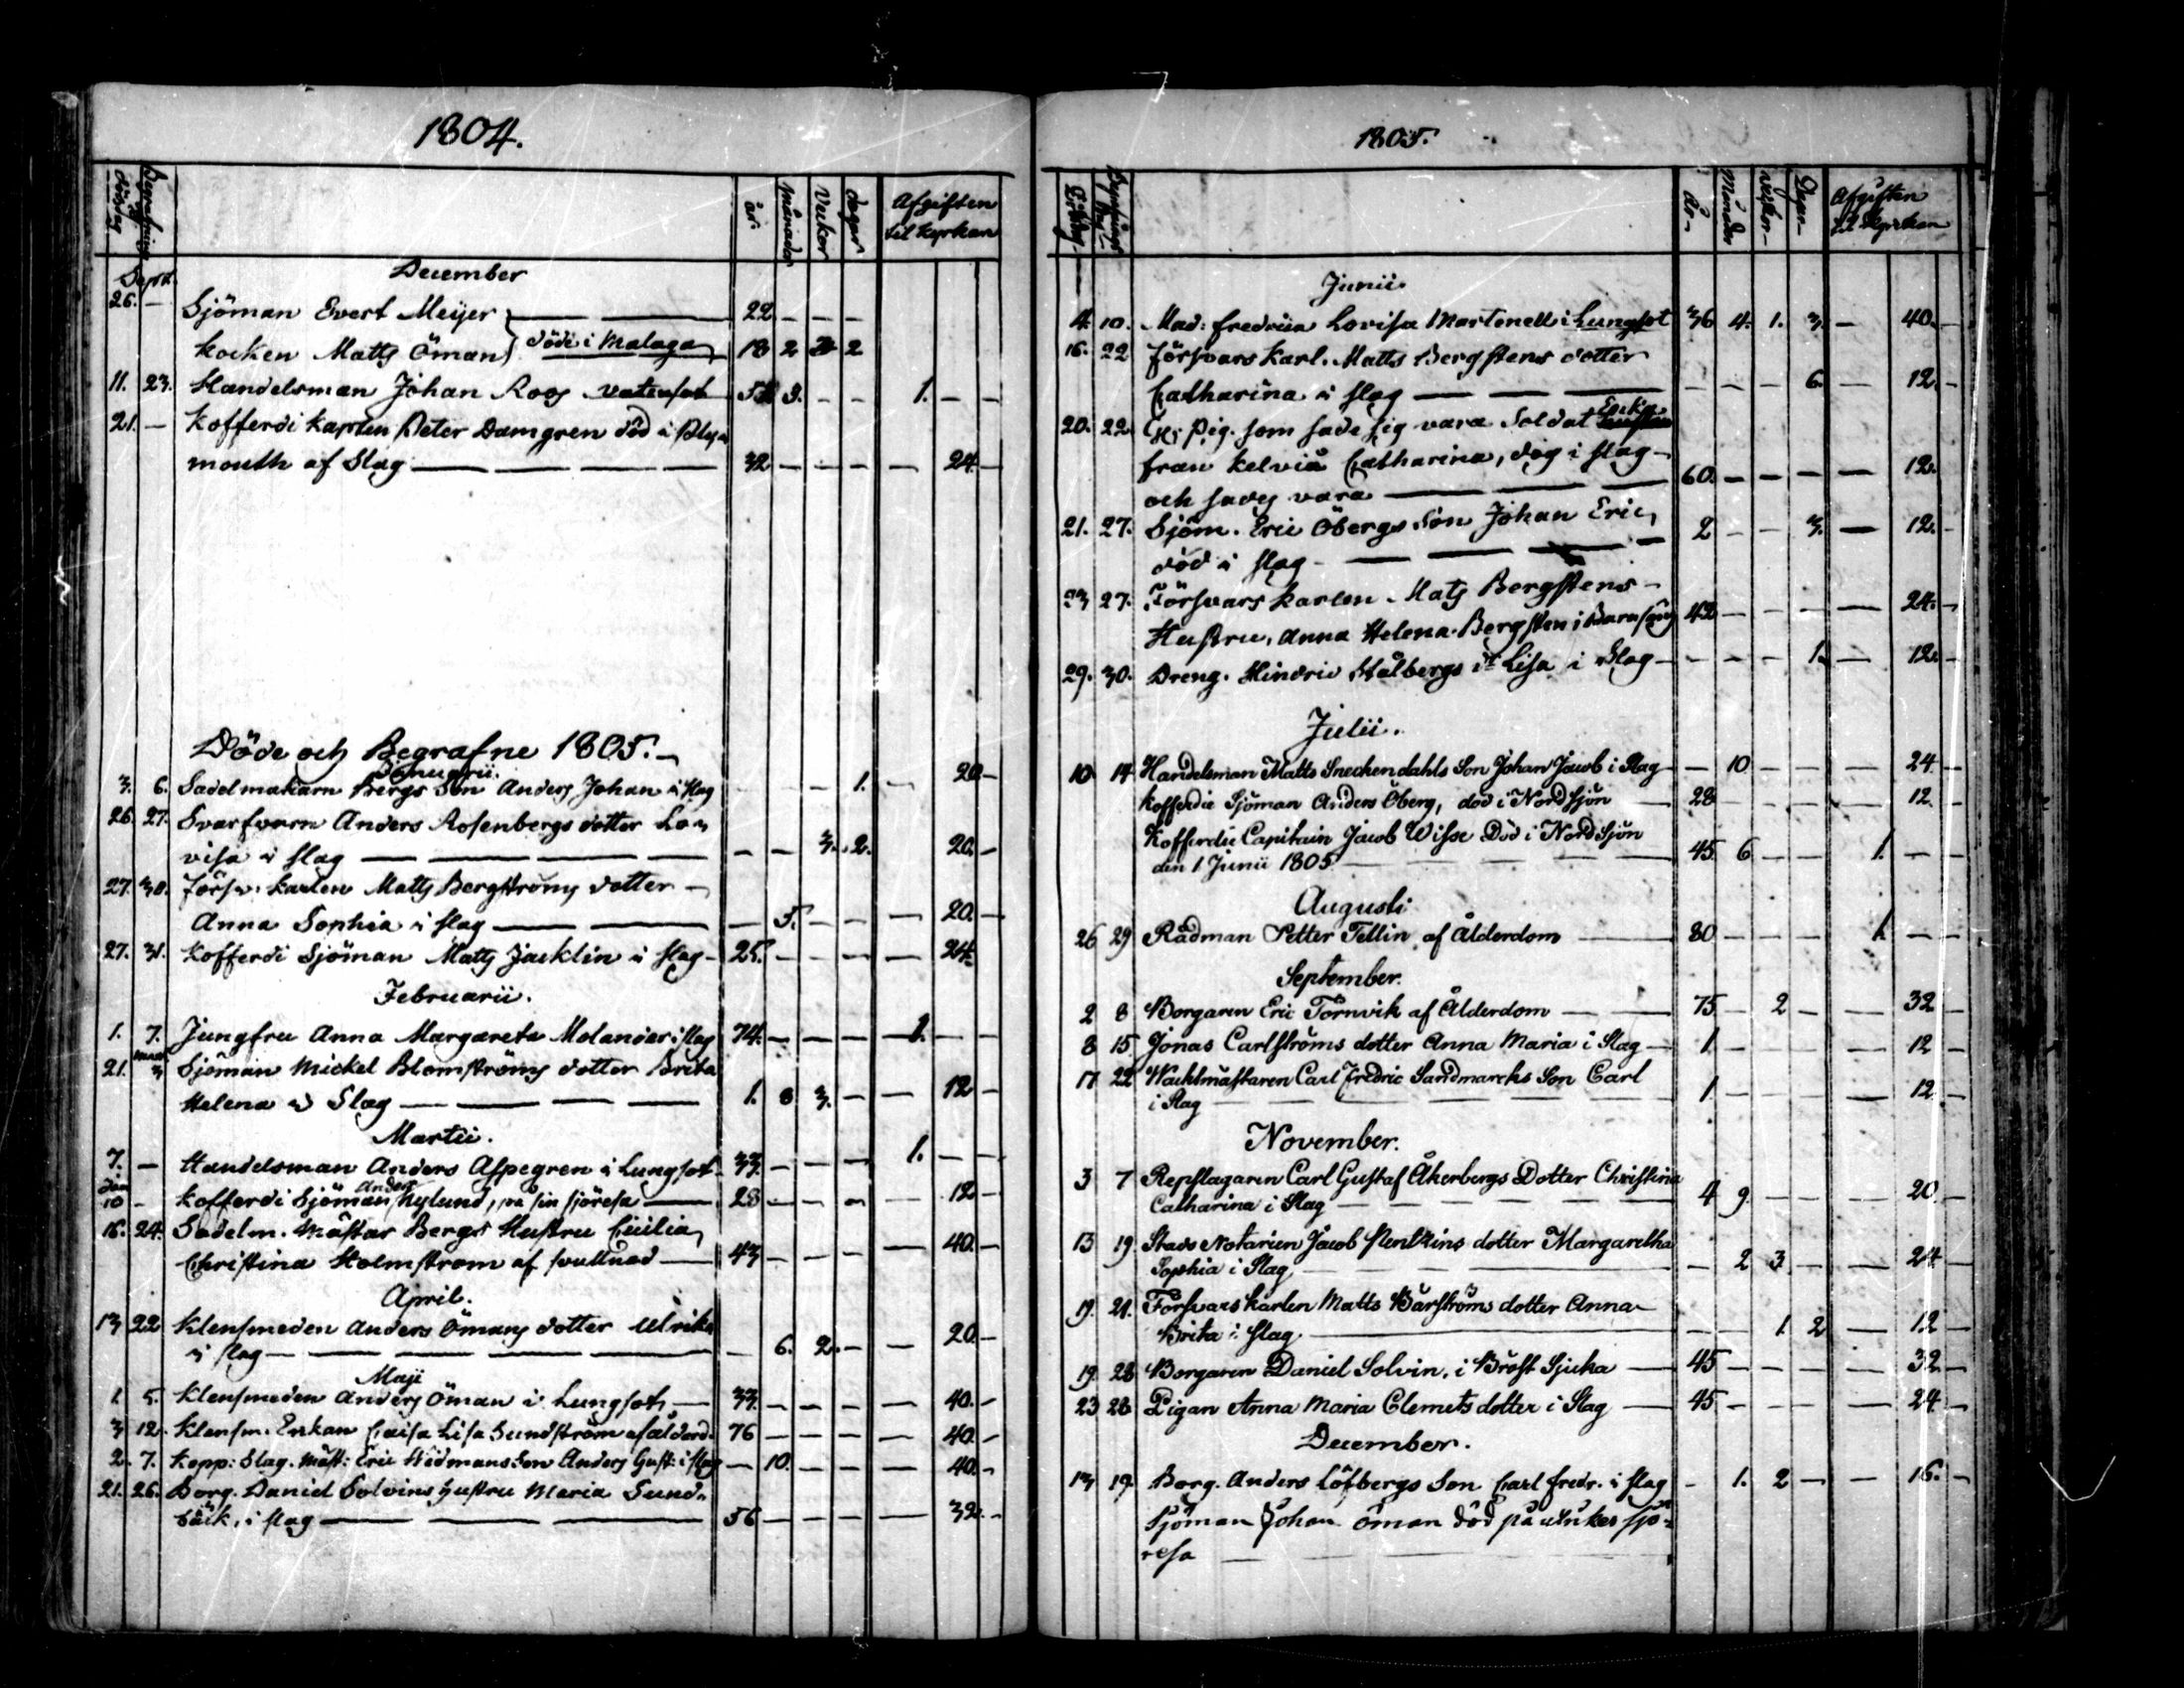 1804.
dödsdag Begrafnings år. månader Veckor dagar Afgiften til kyrkan
December
Sept.
26. — Sjöman Evert Meijer 22 — — —
kocken Matts Öman döde i Malaga 18 2 3 2
11. 23. Handelsman Johan Roos vatensot 55 9. — — 1. — —
21. — Kofferdi kapten Peter Damgren död i Plÿ
mouth af Slag 32 — — — — 24. —
Döde och Begrafne 1805.
Januarii.
3. 6. Sadelmakarn Bergs Son Anders Johan i slag — — — 1. — 20 —
26. 27. Svarfvarn Anders Rosenbergs dotter Lo
visa i slag — — 3. 2. 20. —
27. 30. Försv. karlen Matts Bergströms dotter
Anna Sophia i slag — 5. — — — 20. —
27. 31. Kofferdi Sjöman Matts Jacklin i slag 25. — — — — 24.
Februarii.
1. 7. Jungfru Anna Margareta Molander i slag 74. — — — 1. — —
21. mart 3 Sjöman Mickel Blomströms dotter Brita
Helena i Slag 1. 8 3. — — 12 —
Martii.
7. — Handelsman Anders Aspegren i Lungsot 37. — — — 1. — —
Jan 10 — Kofferdi Sjöman Anders Nylund, på sin sjöresa 28 — — — — 12 —
16. 24. Sadelm. Mästar Bergs Hustru Cicilia
Christina Holmstrom af svullnad 43 — — — — 40. —
April.
13 22 Klensmeden Anders Ömans dotter Ulrika
i slag — 6. 2. — — 20. —
Maji
1. 5. Klensmeden Anders Öman i Lungsot 37. — — — 40. —
3 12. Klensm. Enkan Caisa Lisa Sundström af ålderd. 76 — — — — 40. —
2. 7. Kopp: Slag. Mäst: Eric Widmans Son Anders Gust: i slag — 10. — — — 40. —
21. 26. Borg. Daniel Solvins hustru Maria Sund
bäck, i slag 56 — — — — 32. —
1805.
Begrafnings År Månader veckor Dagar Afgiften til Kyrkan
Junii
4. 10. Mad: Fredrica Lovisa Martenell i Lungsot 36 4. 1. 3. — 40. —
16. 22 Försvars karl. Matts Bergstens dotter
Catharina i slag — — — 6. — 12. —
20. 22. Pig. som sade sig vara Soldat Enka
fran Kelviå Catharina, dog i slag
och sades vara 60. — — — — 12.
21. 27. Sjöm. Eric Öbergs Son Johan Eric
död i slag 2 — — 3. — 12. —
23 27. Försvars karlen Mats Bergstens
Hustru, Anna Helena Bergsten i Barnsäng 42 — — — — 24. —
29. 30. Dreng. Hindric Stålbergs dr Lisa i Slag — — — 1. — 12. —
Julii.
10 14 Handelsman Matts Sneckendahls Son Johan Jacob i Slag — 10 — — — 24. —
Kofferdie Sjöman Anders Öberg, död i Nord Sjön 28 — — — — 12. —
Kofferdie Capitain Jacob Wisse Död i Nord Sjön
den 1 Junii 1805 45 6 — — 1. — —
Augusti
26 29 Rådman Petter Tellin af Ålderdom 80 — — — 1. — —
September.
2 8 Borgaren Eric Törnvik af Ålderdom 75 — 2 — — 32 —
8 15 Jonas Carlströms dotter Anna Maria i Slag 1. — — — — 12 —
17 22 Wachtmästaren Carl Fredric Sandmarcks Son Carl
i Slag 1. — — — — 12. —
November.
3 7 Repslagaren Carl Gustaf Åkerbergs Dotter Christina
Catharina i Slag 4 9. — — — 20. —
13 19. Stads Notarien Jacob dotter Margaretha
Sophia i Slag — 2 3. — — 24 —
19. 21. Försvarskarlen Matts Bärströms dotter Anna
Brita i Slag — — 1. 2 — 12 —
19. 28 Borgaren Daniel Solvin, i Bröst Sjuka 45 — — — — 32. —
23 28 Pigan Anna Maria Clemets dotter i Slag 45 — — — — 24. —
December.
13 19. Borg. Anders Löfbergs Son Carl Fredr. i slag — 1. 2 — — 16. —
Sjöman Johan Öman död på utrikes sjö
resa